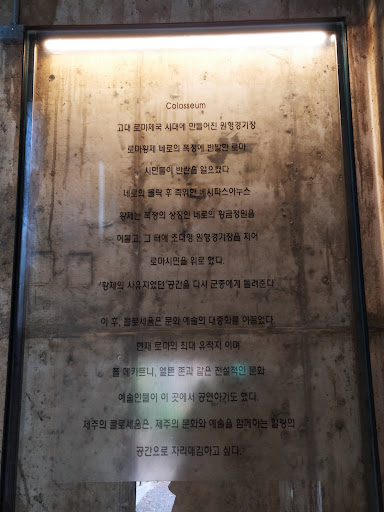 Colosseum
고대 로마제국 시대에 만들어진 원형경기장
로마황제 네로의 폭정에 반발한 로마
시민들이 반란을 일으켰다.
네로의 몰락 후 즉위한 베시파스아누스
황제는 폭정의 상징인 네로의 황금정원을
허물고, 그 터에 초대형 원형경기장을 지어
로마시민을 위로 했다.
“황제의 사유지였던”공간을 다시 군중에게 돌려준다.
이 후, 콜로세움은 문화 예술의 대중화를 이끌었다.
현재 로마의 최대 유적지 이며
폴 메카트니, 엘튼 존과 같은 전설적인 문화
예술인들이 이 곳에서 공연하기도 했다.
제주의 콜로세움은, 제주의 문화와 예술을 함께하는 힐링의
공간으로 자리매김하고 싶다.